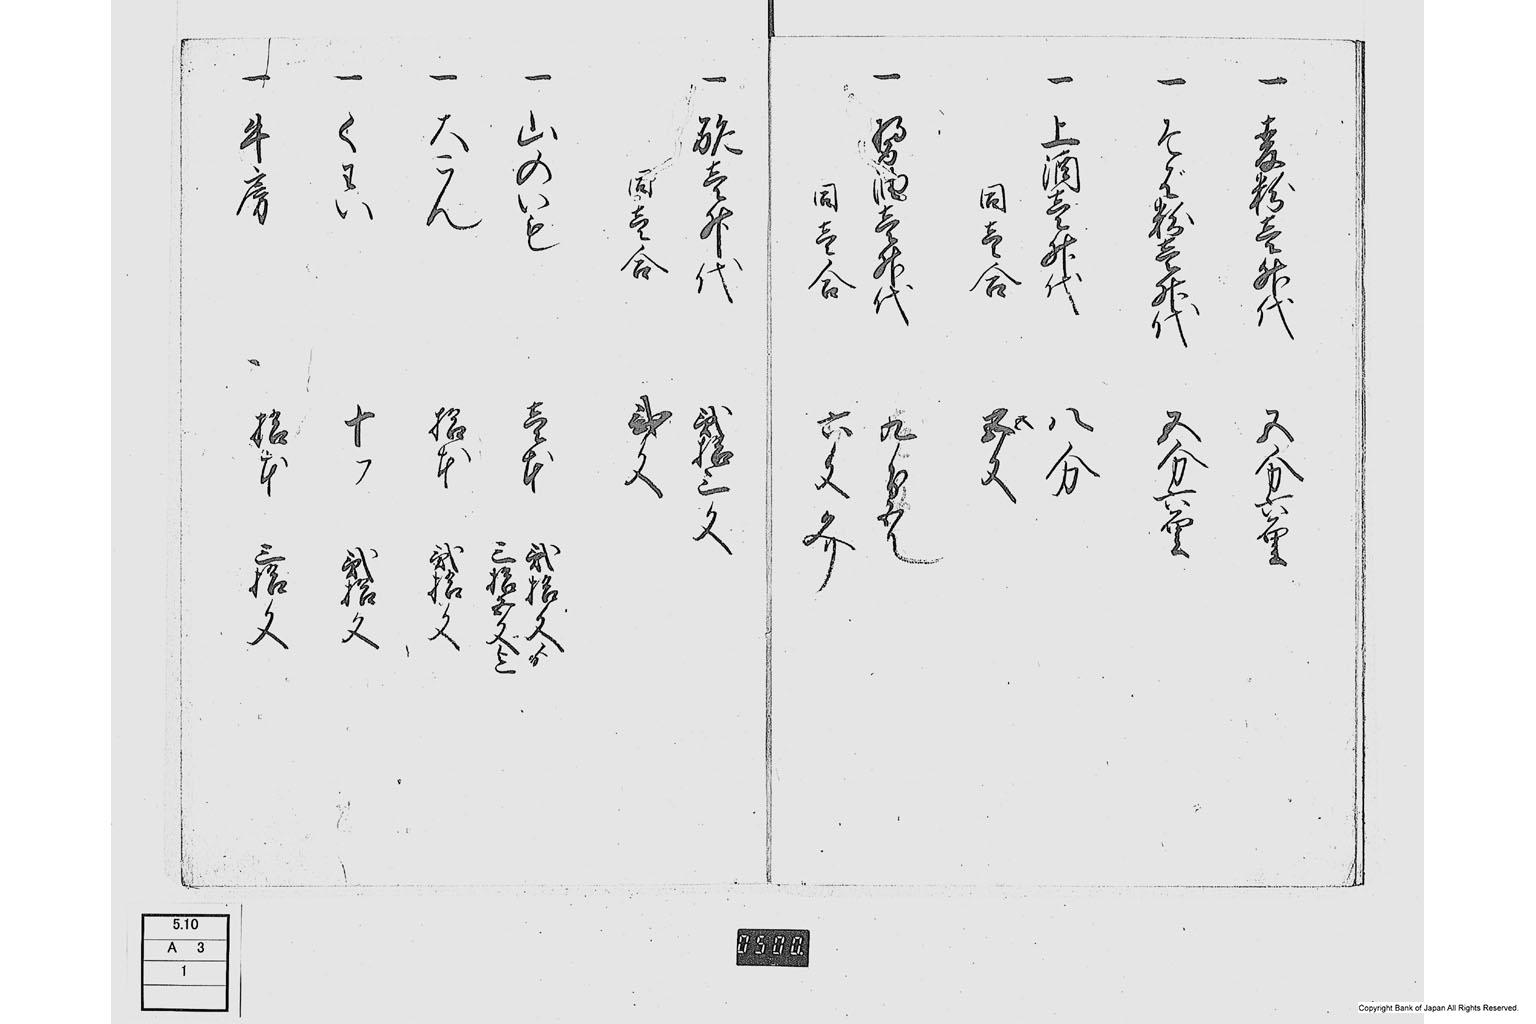 一 麦粉壱升代 五分六厘
一 そば粉壱升代 五分六厘
一 上酒壱升代 八分
同壱合 文
一 醤油壱升代
同壱合 六文
一 酢壱升代 弐拾三文
同壱合 弐文
一 山のいも 壱本 弐拾文より
三拾五文迄
一 大こん 拾本 弐拾文
一 くわい 十ヲ 弐拾文
一 牛房 拾本 三拾文
5.10
A 3
1
0500.
Copyright Bank of Japan All Rights Reserved.